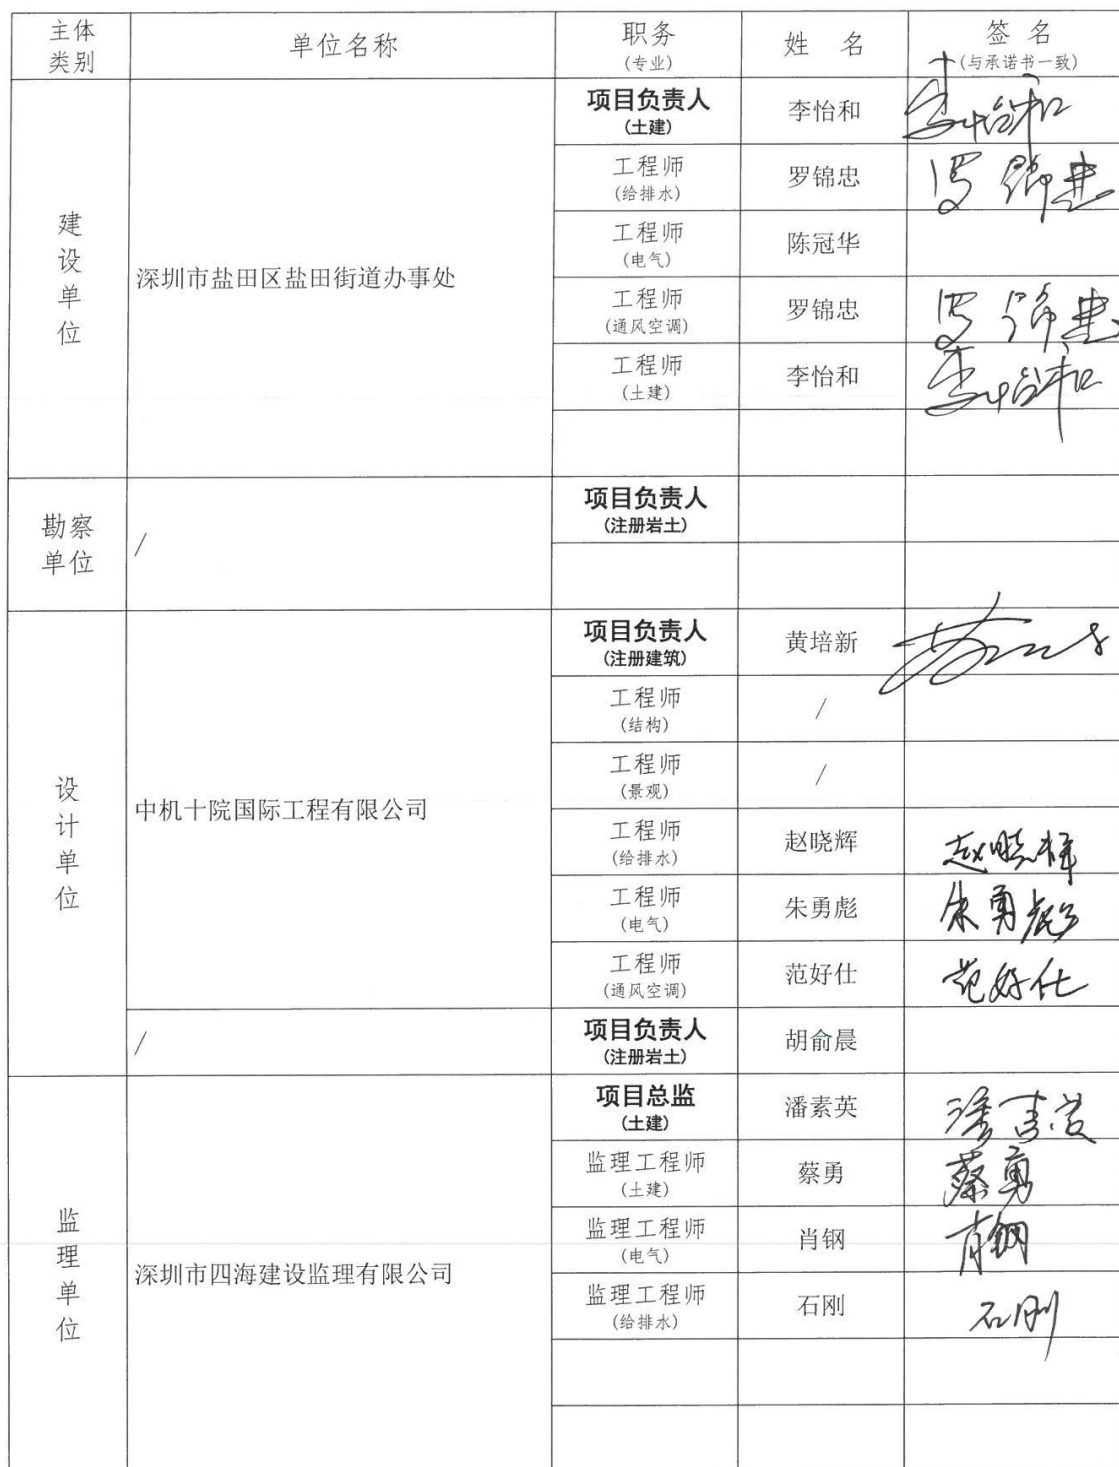 主体
类别
单位名称
职务
(专业)
姓 名
签 名
(与承诺书一致)
建设单位
深圳市盐田区盐田街道办事处
项目负责人
(土建)
李怡和
李怡和
工程师
(给排水)
罗锦忠
罗锦忠
工程师
(电气)
陈冠华
工程师
(通风空调)
罗锦忠
罗锦忠
工程师
(土建)
李怡和
李怡和
勘察
单位
/
项目负责人
(注册岩土)
设计单位
中机十院国际工程有限公司
项目负责人
(注册建筑)
黄培新
工程师
(结构)
/
工程师
(景观)
/
工程师
(给排水)
赵晓辉
赵晓辉
工程师
(电气)
朱勇彪
朱勇彪
工程师
(通风空调)
范好仕
范好仕
/
项目负责人
(注册岩土)
胡俞晨
监理单位
深圳市四海建设监理有限公司
项目总监
(土建)
潘素英
潘素英
监理工程师
(土建)
蔡勇
蔡勇
监理工程师
(电气)
肖钢
肖钢
监理工程师
(给排水)
石刚
石刚